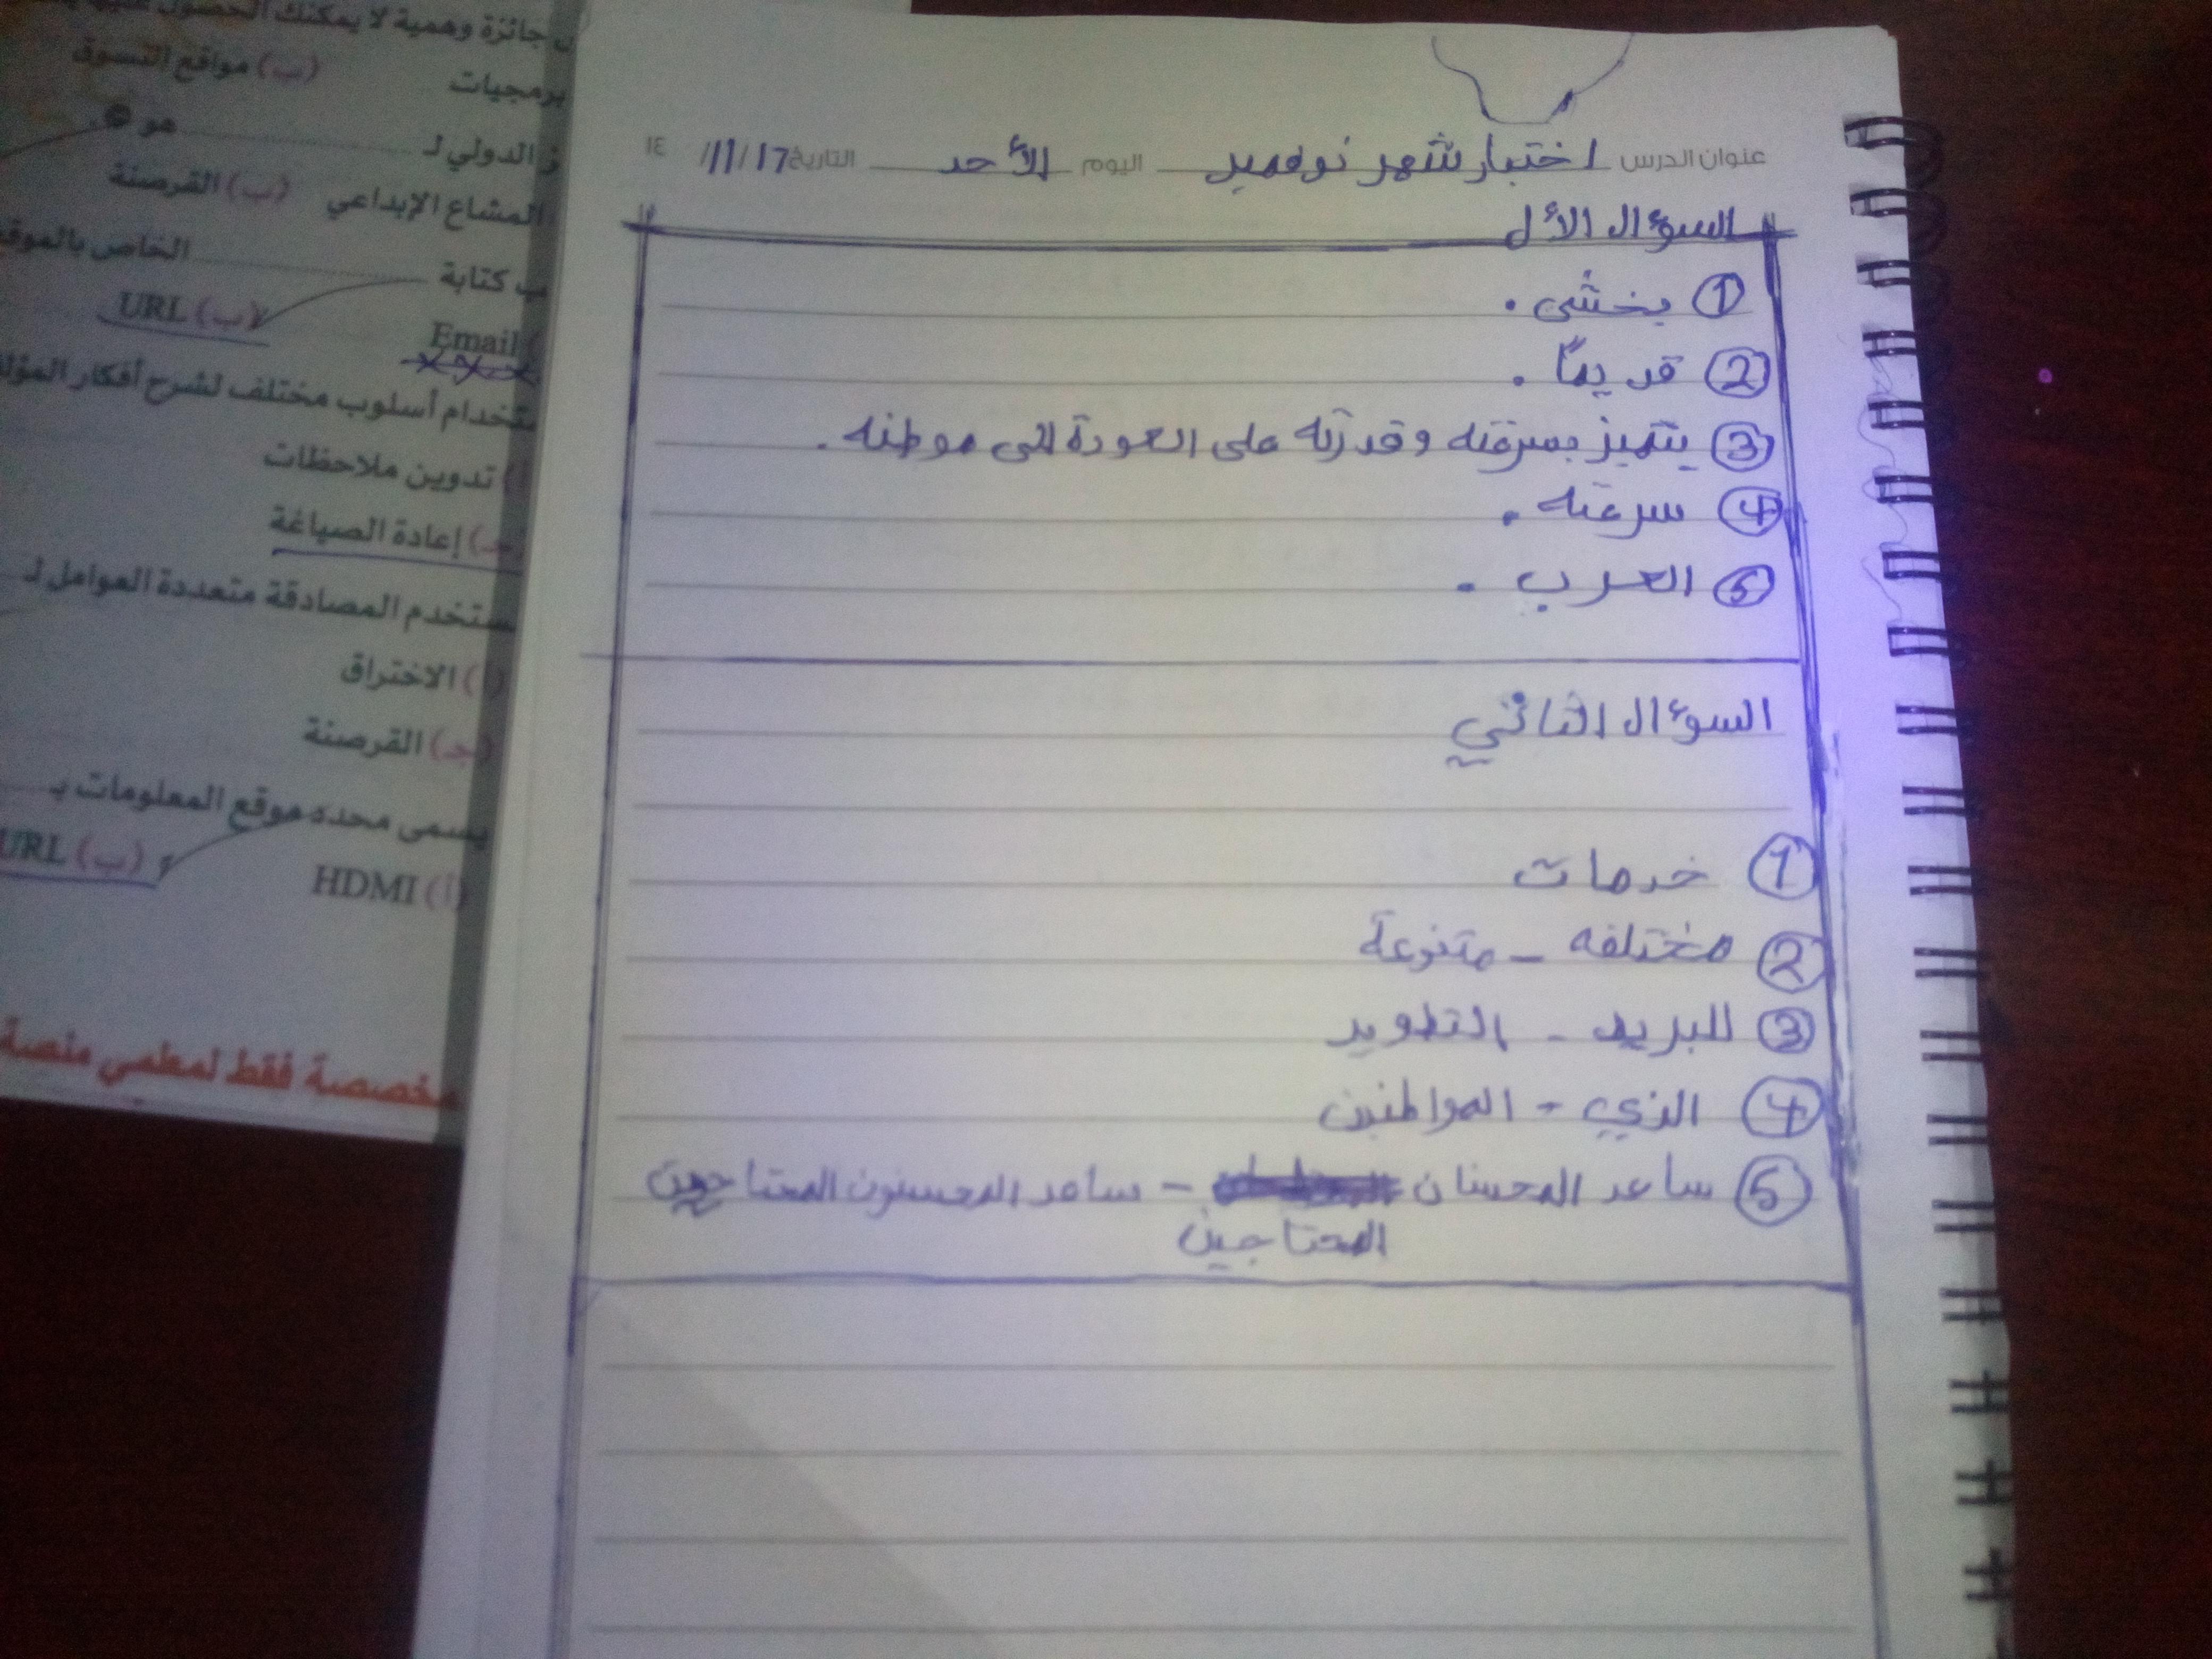 عنوان الدرس اختبار شهر نوفمبر اليوم الأحد التاريخ 17/11/ ١٤
السوءال الأل
① يخشى .
② قديمًا .
③ يتميز بسرعته وقدرته على العودة إلى موطنه .
④ سرعته .
⑤ العرب .
السوءال الثاني
① خدمات
② مختلفه - متنوعة
③ للبريد - التطوير
④ الذي - المواطنين
⑤ ساعد المحسنان - ساعد المحسنون المحتاجين
المحتاجين
جائزة وهمية لا يمكنك الحصول عليها
برمجيات (ب) مواقع التسوق
الدولي لـ هو
المشاع الإبداعي (ب) القرصنة
كتابة الخاص بالموقع
Email (ب) URL
أسلوب مختلف لشرح أفكار
تدوين ملاحظات
(جـ) إعادة الصياغة
المصادقة متعددة العوامل لـ
(أ) الاختراق
(جـ) القرصنة
يسمى محدد موقع المعلومات بـ
(أ) HDMI (ب) URL
مخصصة فقط لمعلمي منصة